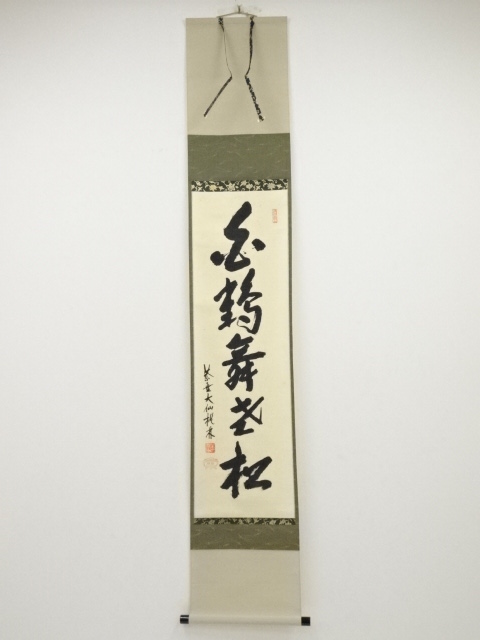 白鶴舞老松
紫野大仙桃林